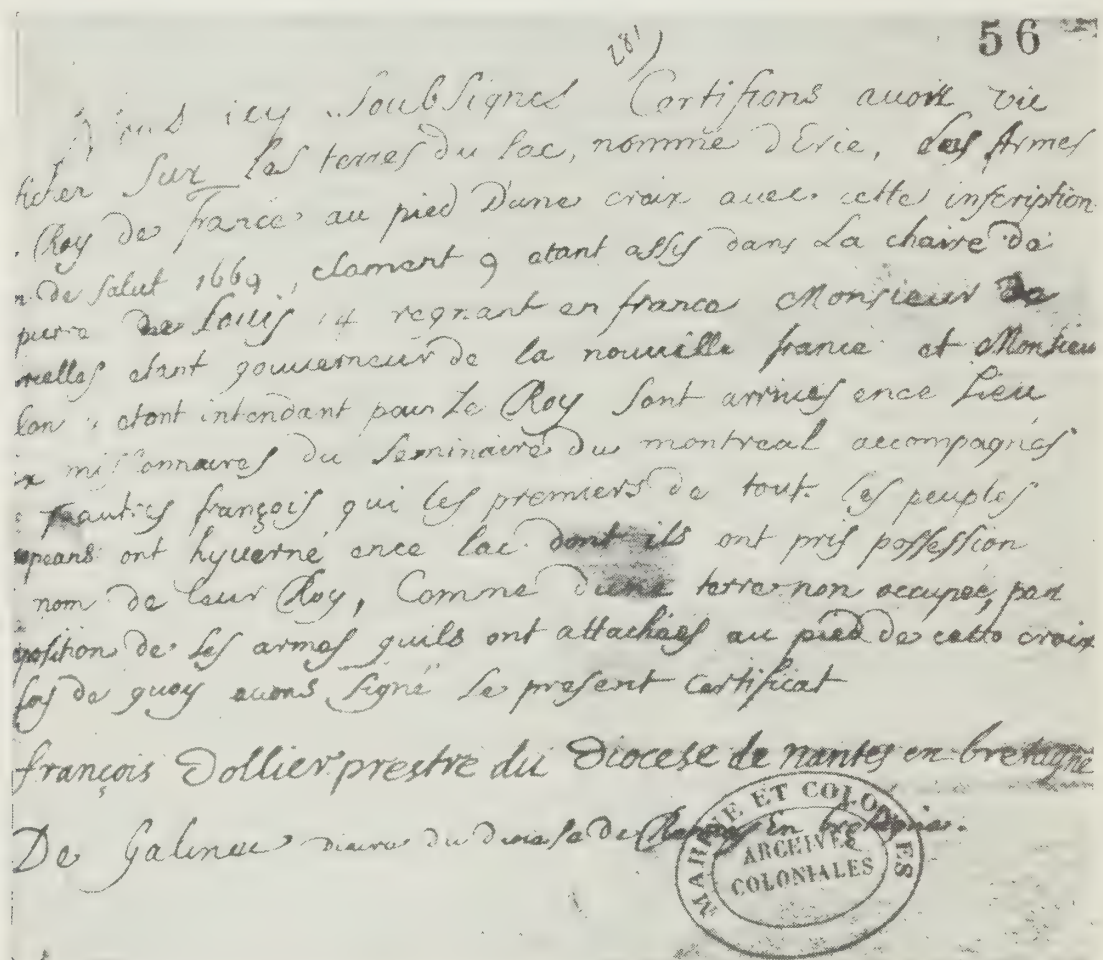 56
281
Nous icy Soubsignes Certifions auoir vie
ticher Sur les terres du lac, nommé d'Erie, des Armes
Roy de france au pied Dune croix auec cette inscription
n de salut 1669, clement 9 etant assis dans La chaire de
pierre de Louis 14 regnant en france Monsieur de
rcelles etant gouuerneur de la nouuelle france et Monsieu
lon etant intendant pour Le Roy Sont arriués ence Lieu
ux missionnaires du Seminaire du montreal accompagnés
autres françois qui les premiers de tout les peuples
opeans ont hyuerné ence lac dont ils ont pris possession
nom de leur Roy, Comme dune terre non occupée, par
position de ses armes quils ont attachées au pied de cette croix
foy de quoy auons Signé Le present Certificat
françois Dollier prestre du Diocese de nantes en bretagne
De Galinee diacre du diocese de Rennes En bretagne.
MARINE ET COLONIES
ARCHIVES
COLONIALES